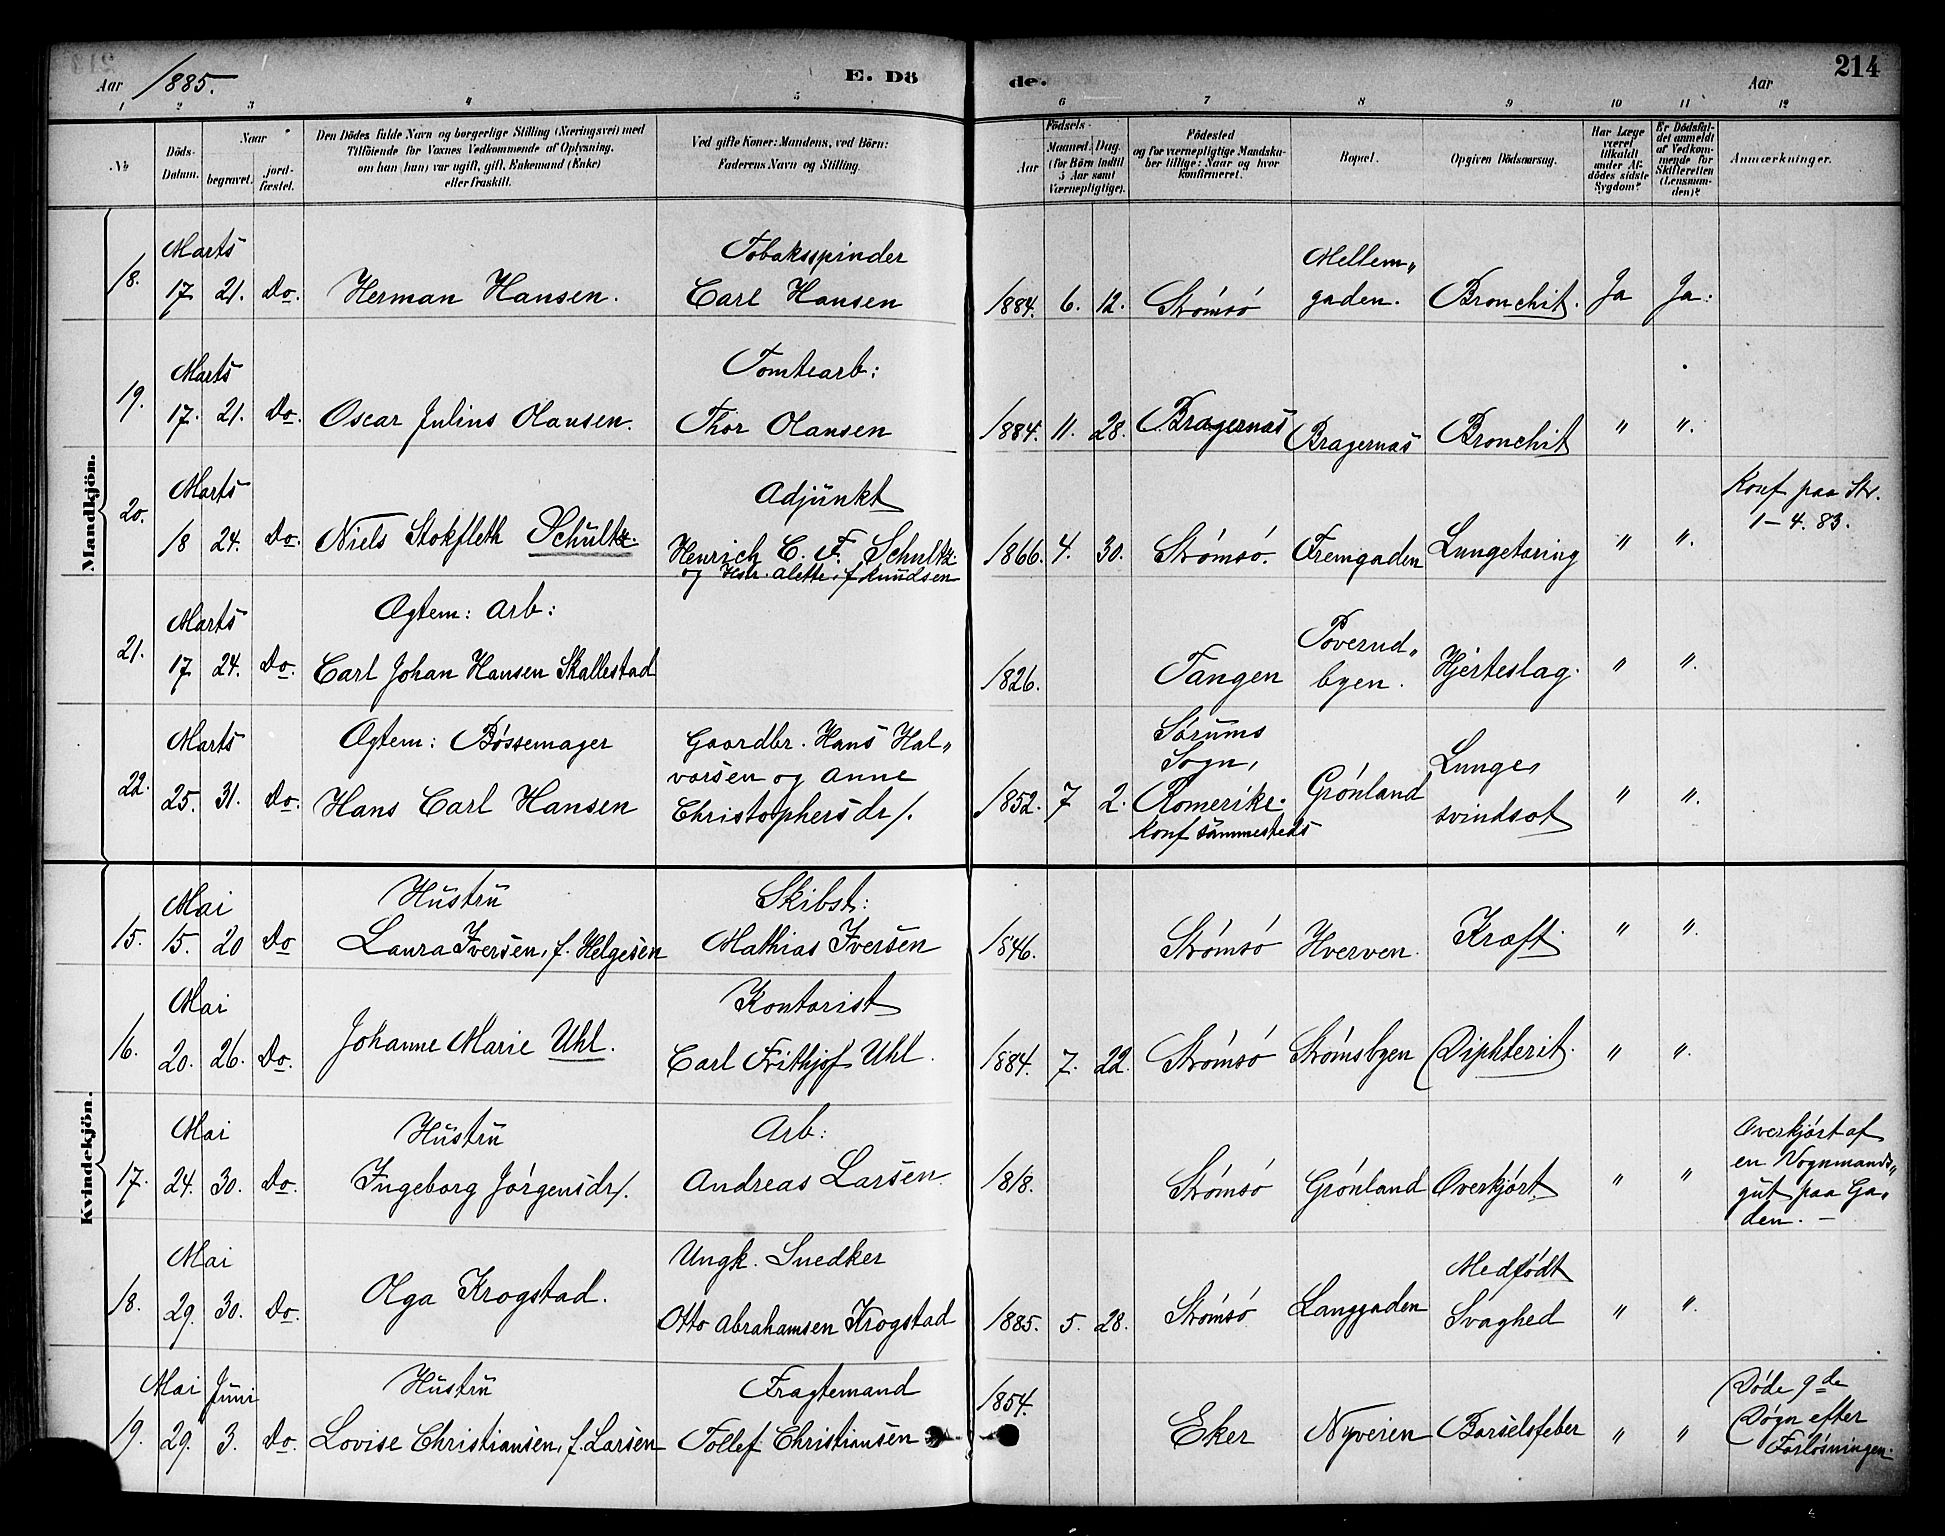 Aar 1885.
E. Dö
de.
Aar
214
1 2 3 4 5 6 7 8 9 10 11 12
No
Döds-
Datum.
Naar
begravet.
jord-
fæstet.
Den Dödes fulde Navn og borgerlige Stilling (Næringsvei) med
Tilföiende for Voxnes Vedkommende af Oplysning,
om han (hun) var ugift, gift, Enkemand (Enke)
eller fraskilt.
Ved gifte Koner: Mandens, ved Börn:
Faderens Navn og Stilling.
Födsels-
Aar
Maaned. Dag.
(for Börn indtil
5 Aar samt
Værnepligtige).
Födested
og for værnepligtige Mandska-
ber tillige: Naar og hvor
konfirmeret.
Bopæl.
Opgiven Dödsaarsag.
Har Læge
været
tilkaldt
under Af-
dödes sidste
Sygdom?
Er Dödsfal-
det anmeldt
af Vedkom-
mende for
Skifteretten
(Lensman-
den)?
Anmærkninger.
Mandkjön.
Marts Tobaksspinder Mellem„
18. 17 21. Do. Herman Hansen. Carl Hansen 1884. 6. 12. Strømsø gaden. Bronchit. Ja Ja.
Marts Tomtearb:
19. 17. 21. Do. Oscar Julius Olausen. Thor Olausen 1884. 11. 28. Bragernæs Bragernæs Bronchit " ".
Marts Adjunkt Konf paa Str.
1-4. 83.
20. 18 24. Do. Niels Stokfleth Schultz. Henrich C. F. Schultz 1866. 4. 30. Strømsø. Fremgaden Lungetæring " ".
og Hstr. Alette f. Knudsen
Marts Ægtem: Arb: Poverud„
21. 17 24. Do. Carl Johan Hansen Skallestad 1826. Tangen byen. Hjerteslag. " ".
Marts Ægtem: Bøssemager Gaardbr. Hans Hal„ Sørums
vorsen og Anne Sogn, Lunge„
22. 25. 31. Do. Hans Carl Hansen Christophersdr/. 1852. 7 2. Romerike. Grønland svindsot " ".
Konf sammesteds
Kvindekjön.
Mai Hustru Skibst:
15. 15. 20 Do Laura Iversen, f. Helgesen Mathias Iversen 1846. Strømsø Hverven. Kræft. " ".
Mai Kontorist
16. 20. 26. Do. Johanne Marie Uhl. Carl Frithjof Uhl. 1884. 7. 22. Strømsø Strømsbyen Diphterit. " ".
Mai Hustru Arb: Overkjørt af
en Vognmands„
17. 24. 30. Do. Ingeborg Jørgensdr/. Andreas Larsen. 1818. Strømsø Grønland Overkjørt. " " gut paa Ga„
den. —
Mai Ungk. Snedker Medfødt
18. 29. 30. Do. Olga Krogstad. Otto Abrahamsen Krogstad 1885. 5. 28. Strømsø Langgaden Svaghed " ".
Mai Juni Hustru Fragtemand 1854. Døde 9de
19. 29. 3. Do. Lovise Christiansen, f. Larsen Tollef Christiansen Eker Nyveien Barselsfeber " " Døgn efter
Forløsningen.